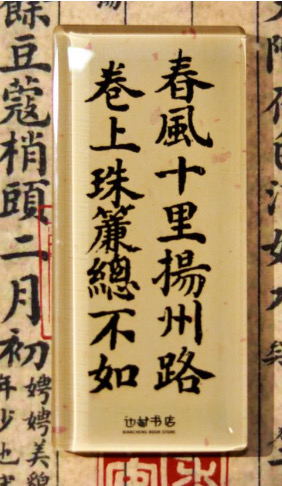 春風十里揚州路
卷上珠簾總不如
边城书店
BIANCHENG BOOK STORE
餘豆蔻梢頭二月初
娉娉美
年少也